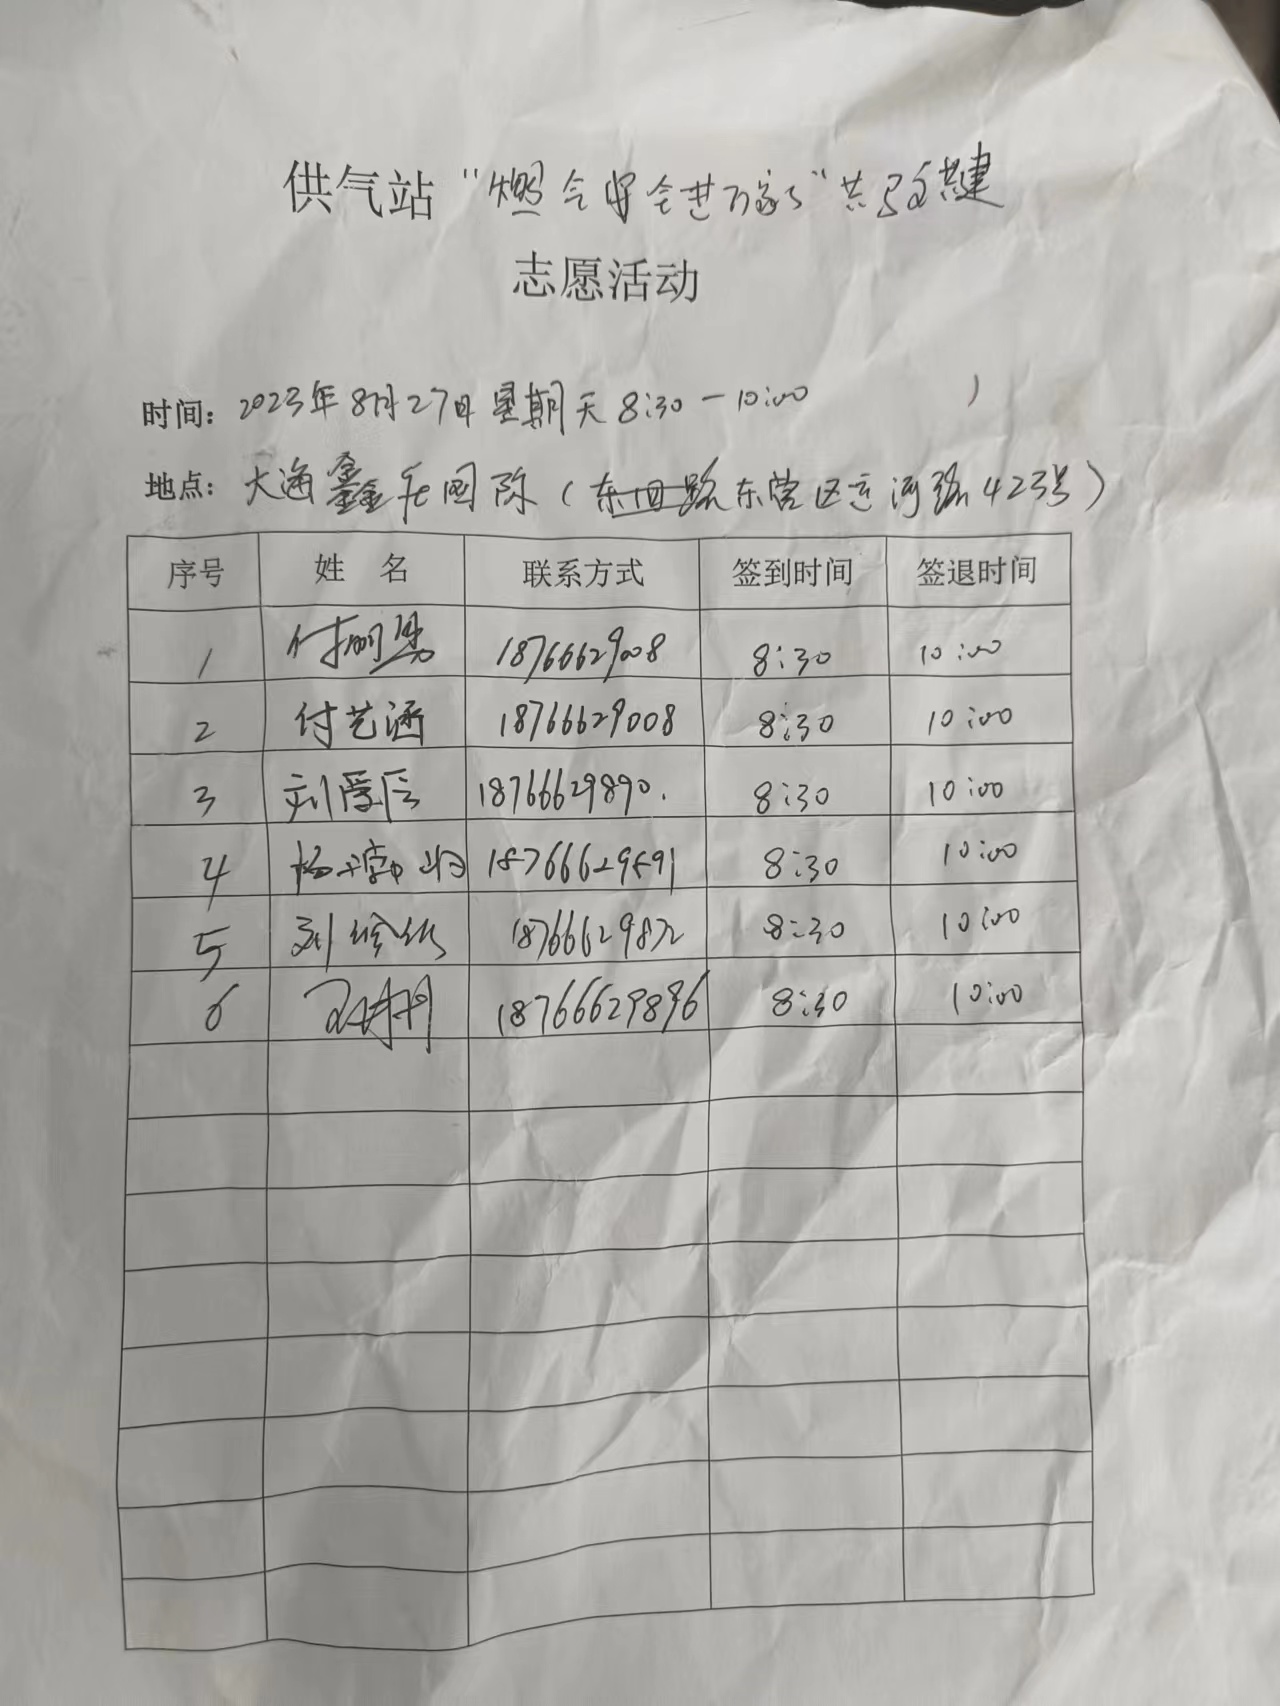 供气站“燃气安全进万家”共驻共建
志愿活动
时间：2023年8月27日星期天8:30-10:00
地点：大海鑫都国际（东营区运河路423号）
序号 姓 名 联系方式 签到时间 签退时间
1 18766629008 8:30 10:00
2 付艺涵 18766629008 8:30 10:00
3 刘爱辰 18766629890. 8:30 10:00
4 18766629891 8:30 10:00
5 18766629872 8:30 10:00
6 18766629896 8:30 10:00